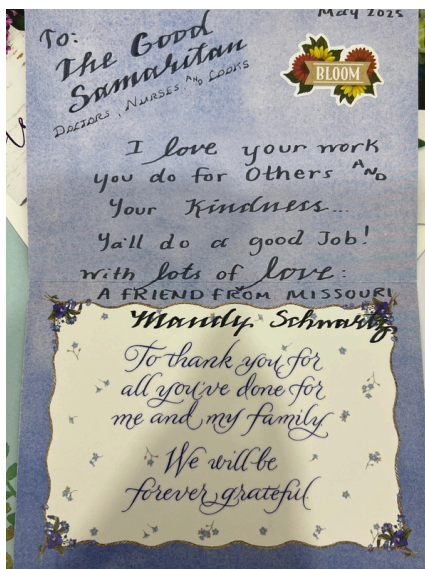 May 2025
To:
The Good
Samaritan
DOCTORS, NURSES AND COOKS
BLOOM
I love your work
you do for Others AND
Your Kindness...
Ya'll do a good Job!
With lots of love:
A FRIEND FROM MISSOURI
Mandy Schwartz
To thank you for
all you've done for
me and my family
We will be
forever grateful